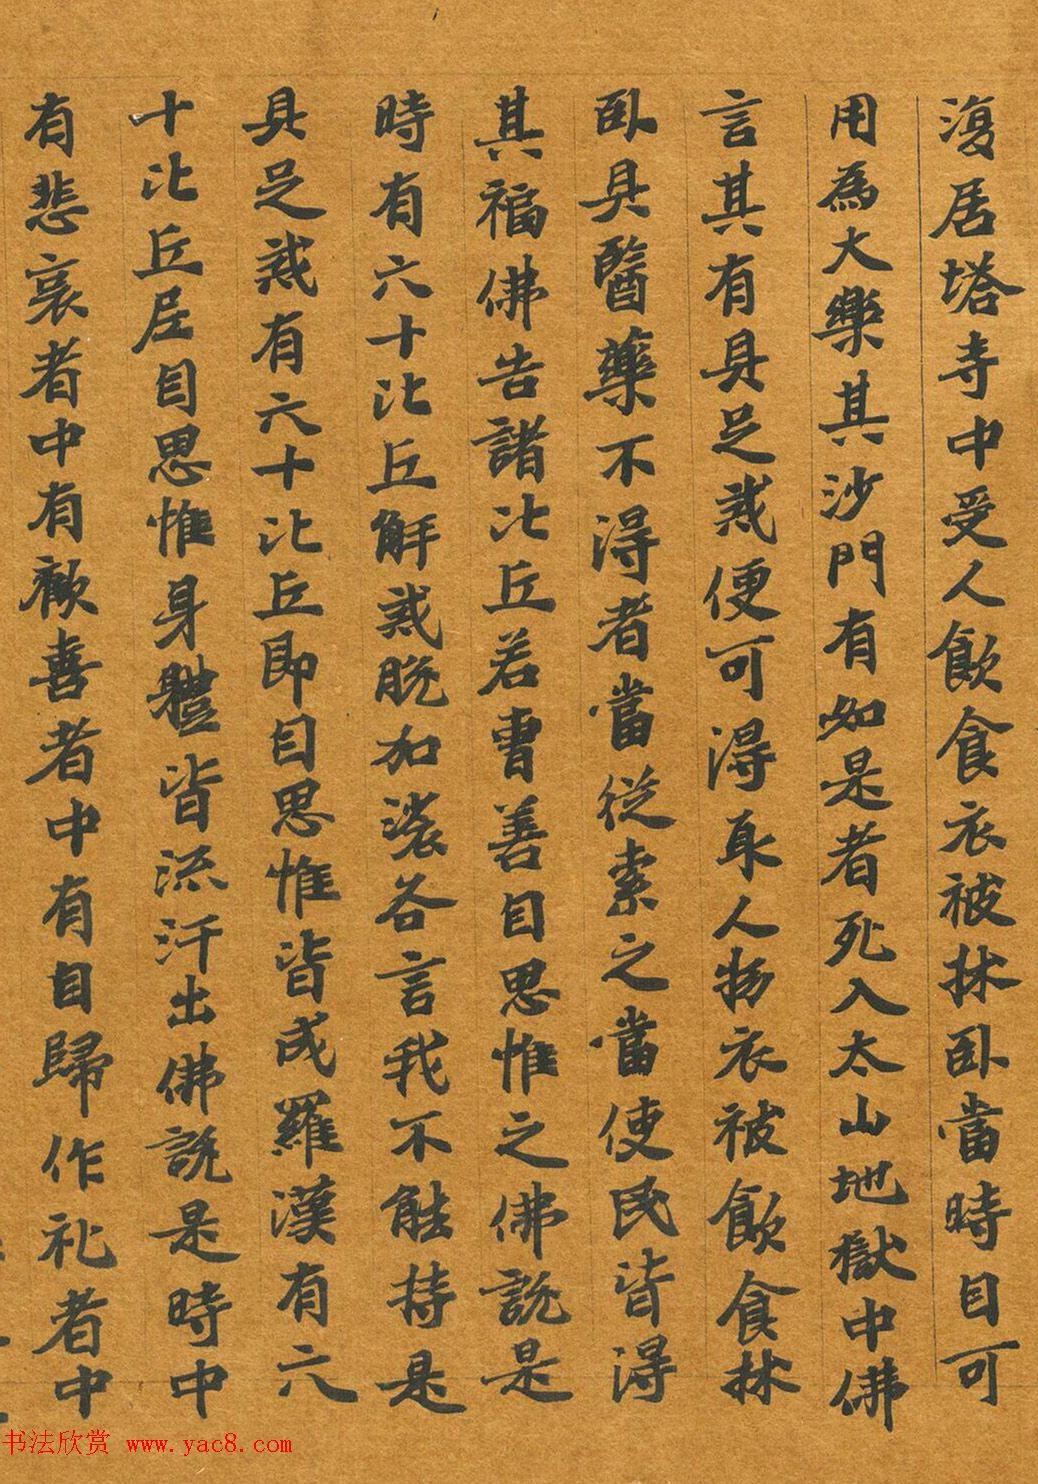 復居塔寺中受人飲食衣被牀卧當時自可
用為大樂其沙門有如是者死入太山地獄中佛
言其有具足戒便可得取人物衣被飲食牀
卧具醫藥不得者當從索之當使民皆得
其福佛告諸比丘若曹善自思惟之佛說是
時有六十比丘解戒脫加裟各言我不能持是
具足戒有六十比丘即自思惟皆成羅漢有六
十比丘居自思惟身體皆流汗出佛說是時中
有悲哀者中有歡喜者中有自歸作礼者中
书法欣赏 www.yac8.com